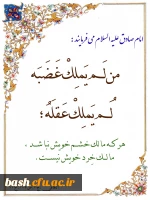 امام صادق علیه السلام می فرمایند:
من لَم یَملِك غَضَبَه
لُم یَملِك عَقلَه؛
هر که مالك خشم خویش نباشد،
مالك خرد خویش نیست.
bash.cfu.ac.ir